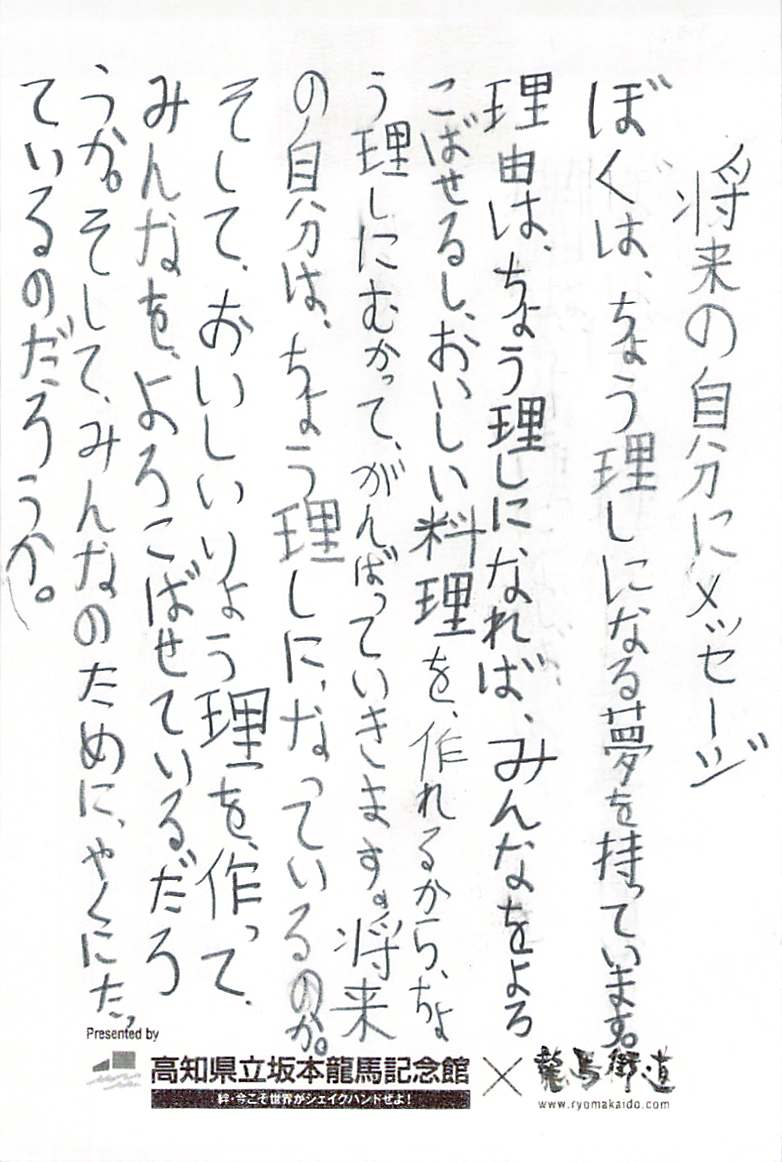 将来の自分にメッセージ
ぼくは、ちょう理しになる夢を持っています。
理由は、ちょう理しになれば、みんなをよろ
こばせるし、おいしい料理を、作れるから、ちょ
う理しにむかって、がんばっていきます。将来
の自分は、ちょう理しに、なっているのか。
そして、おいしいりょう理を、作って、
みんなを、よろこばせているだろ
うか。そして、みんなのために、やくにたっ
ているのだろうか。
Presented by
高知県立坂本龍馬記念館×龍馬街道
絆・今こそ世界がシェイクハンドせよ！
www.ryomakaido.com